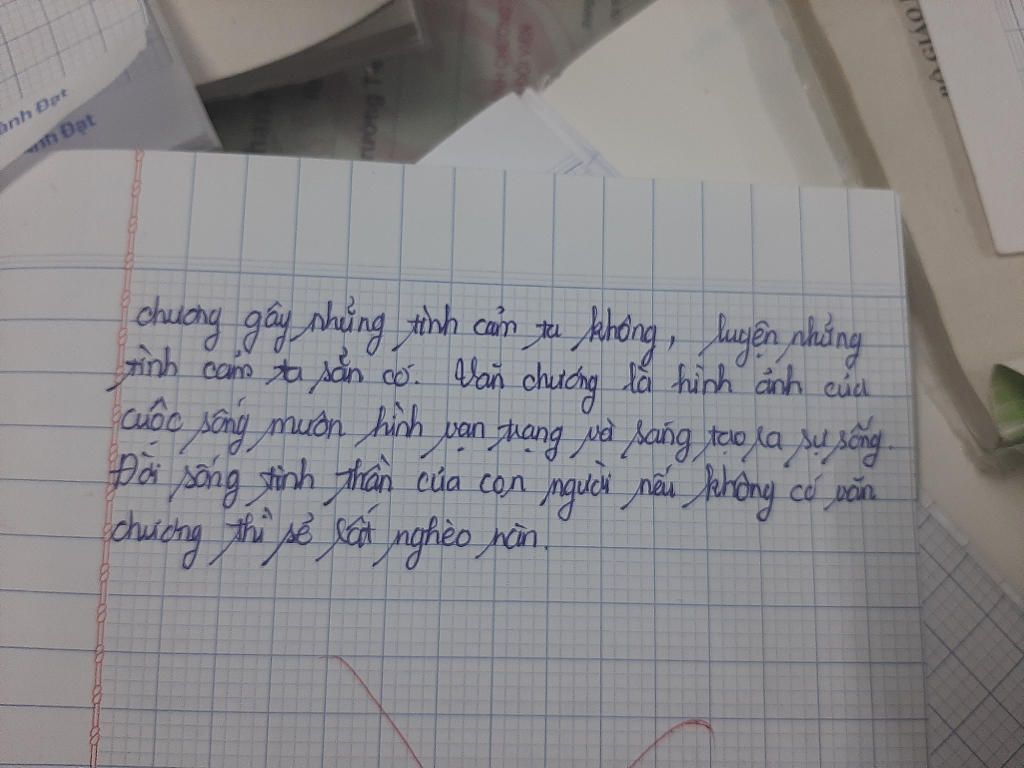 ành Đạt
ành Đạt
Trường Tiể
chương gây những tình cảm ta không, luyện những
tình cảm ta sẳn có. Văn chương là hình ảnh của
cuộc sống muôn hình vạn trạng và sáng tạo ra sự sống.
Đời sống tinh thần của con người nếu không có văn
chương thì sẻ rất nghèo nàn.